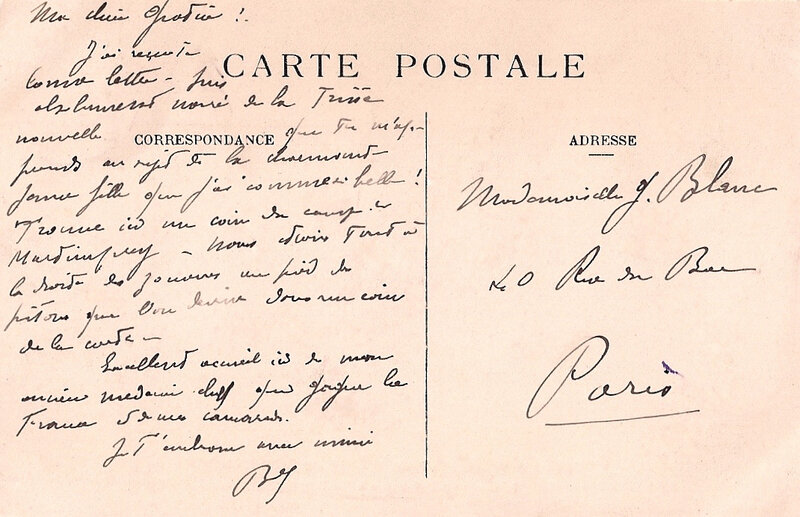 CARTE POSTALE
CORRESPONDANCE
ADRESSE
Ma chère
J'ai reçu ta
bonne lettre - suis
de la Triste
nouvelle que tu m'ap-
prends au sujet de la charmante
jeune fille que j'ai connue si belle !
Trouve ici un coin du camp de
Martimprey - Nous étions Tout à
la droite des zouaves au pied du
piton que l'on devine dans un coin
de la carte -
Excellent accueil ici de mon
ancien médecin chef que gagne la
France et de mes camarades.
Je T'embrasse
Mademoiselle J. Blanc
40 Rue du Bac
Paris